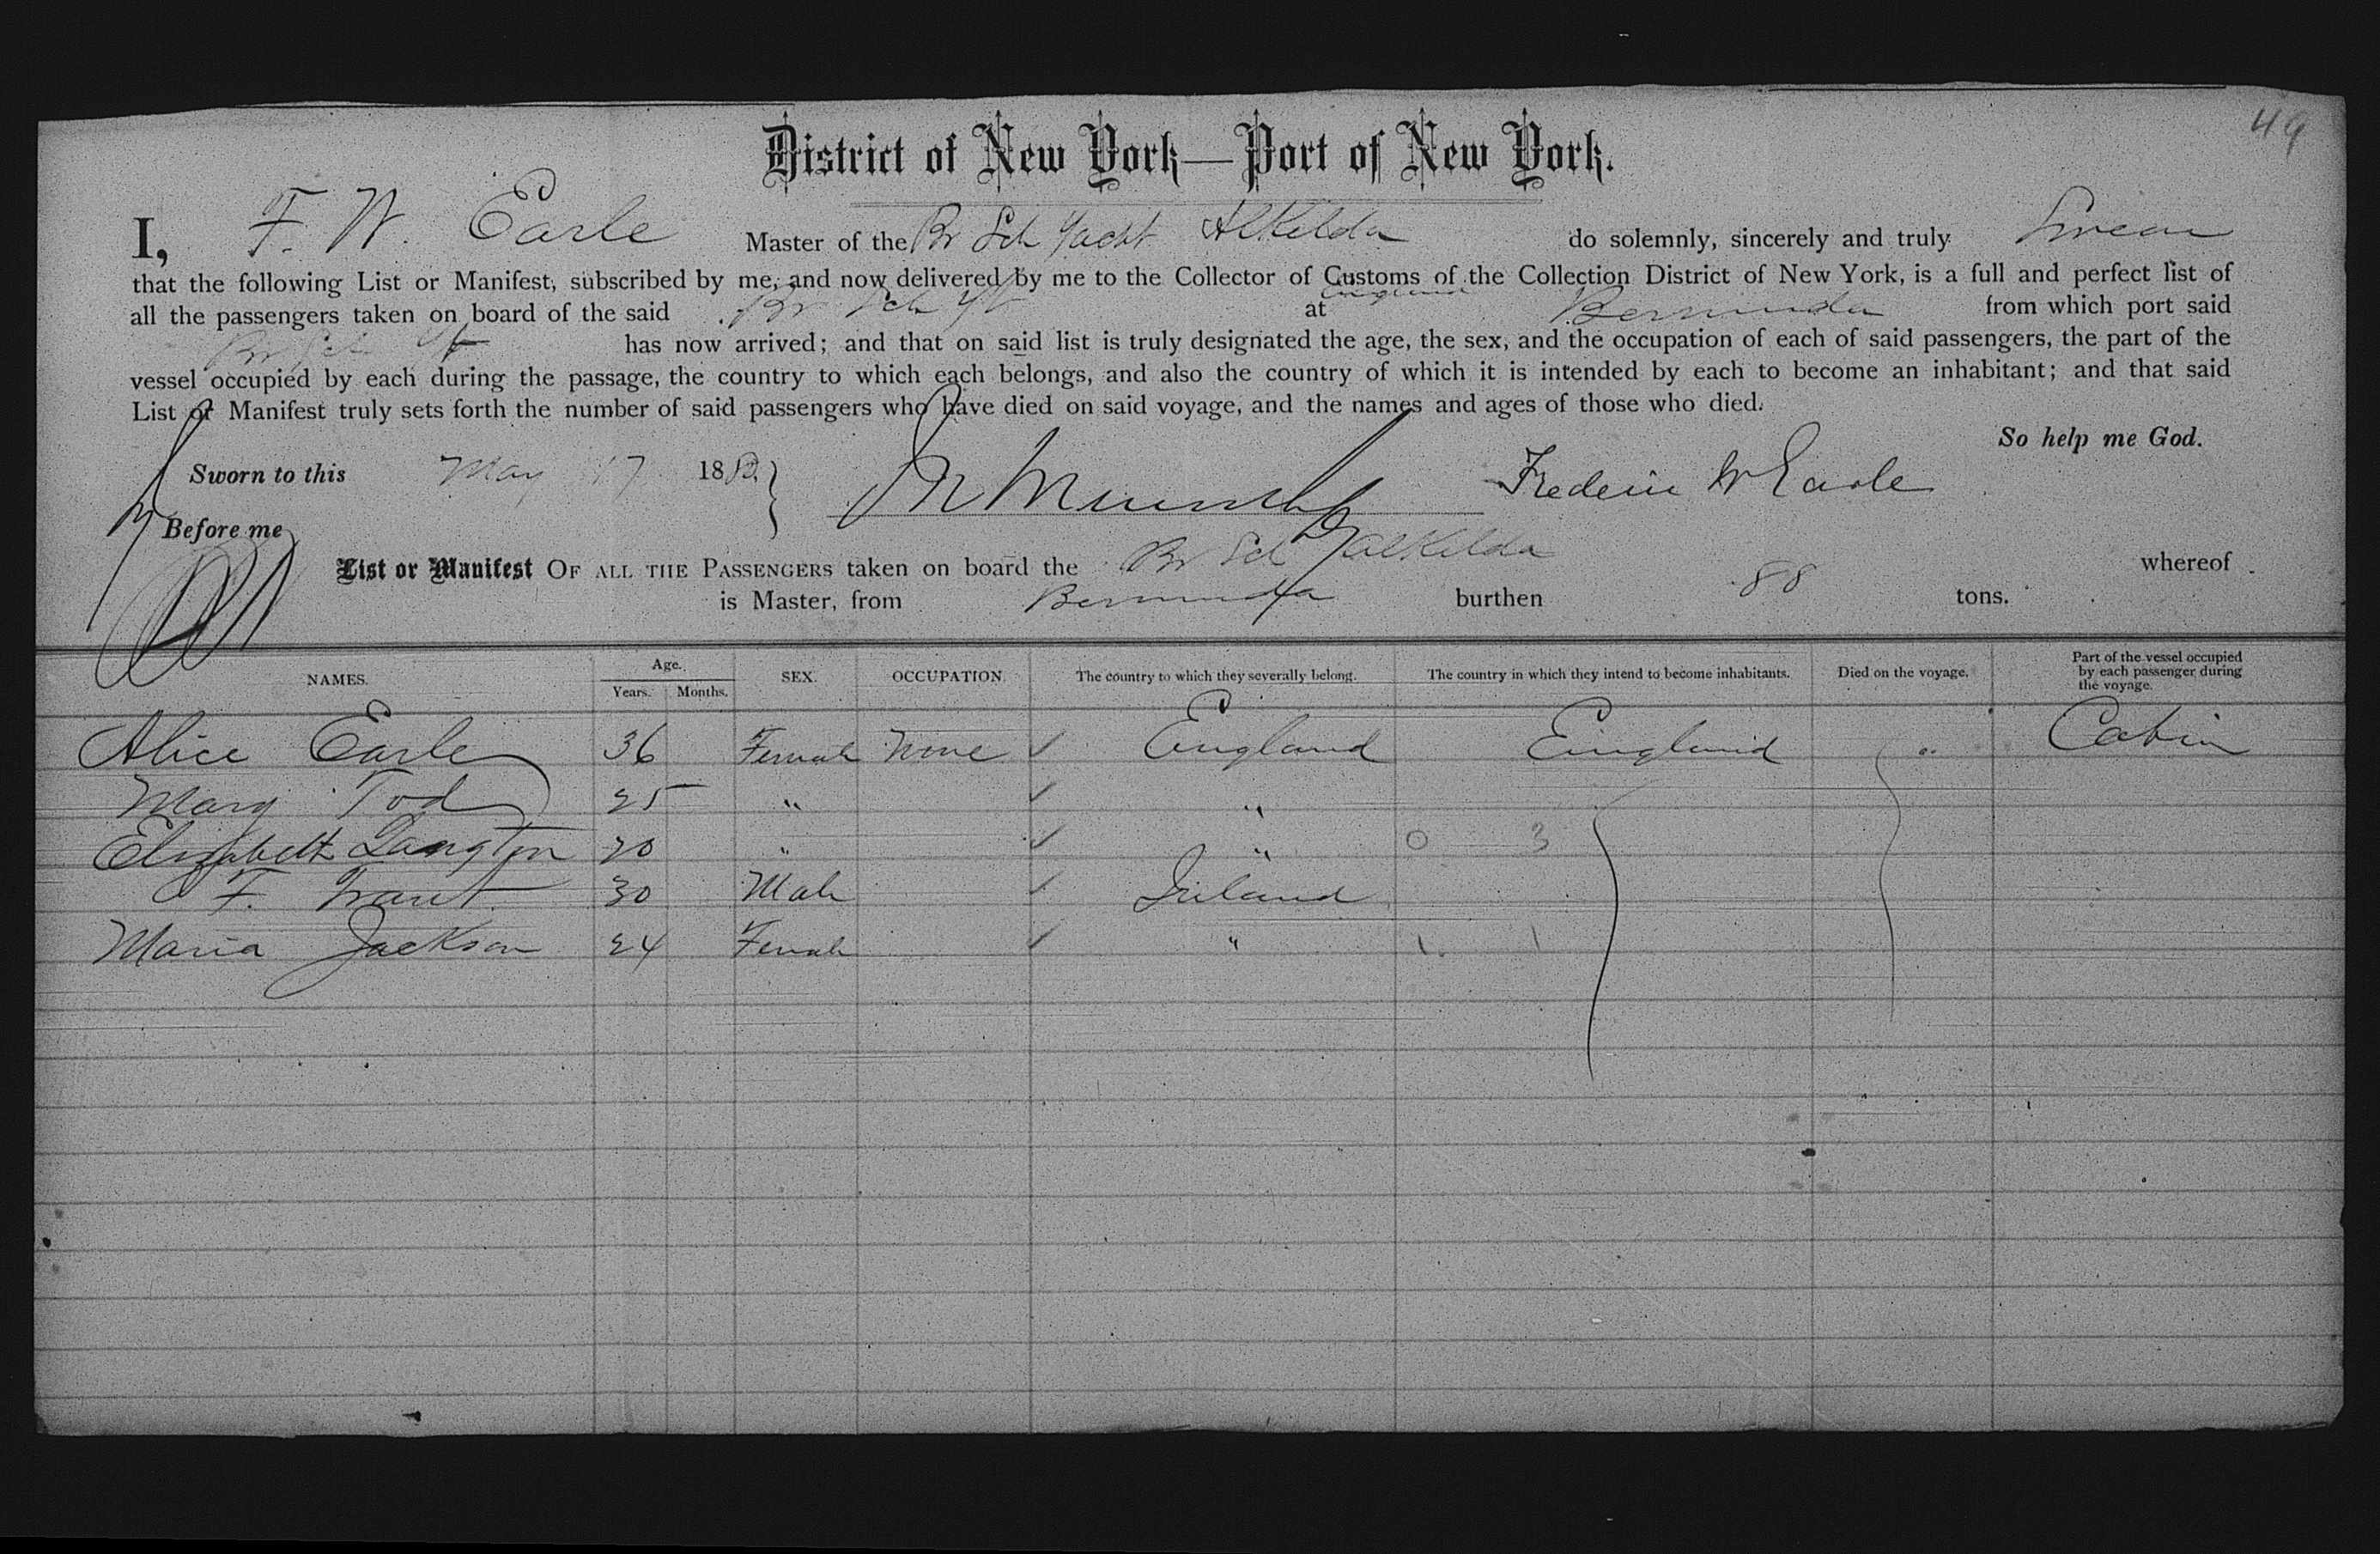 49
District of New York—Port of New York.
I, F. W. Earle Master of the Br Sch Yacht do solemnly, sincerely and truly Swear
that the following List or Manifest, subscribed by me, and now delivered by me to the Collector of Customs of the Collection District of New York, is a full and perfect list of
all the passengers taken on board of the said Br Sch Yt at England Bermuda from which port said
Br Sch Yt has now arrived; and that on said list is truly designated the age, the sex, and the occupation of each of said passengers, the part of the
vessel occupied by each during the passage, the country to which each belongs, and also the country of which it is intended by each to become an inhabitant; and that said
List or Manifest truly sets forth the number of said passengers who have died on said voyage, and the names and ages of those who died.
So help me God.
Sworn to this May 17 188 Frederic W Earle
Before me
List or Manifest OF ALL THE PASSENGERS taken on board the Br Sch whereof
is Master, from Bermuda burthen 88 tons.
NAMES. Age. Years. Months. SEX. OCCUPATION. The country to which they severally belong. The country in which they intend to become inhabitants. Died on the voyage. Part of the vessel occupied by each passenger during the voyage.
Alice Earle 36 Female None ✓ England England " Cabin
Mary Tod 25 " ✓ "
Elizabeth Langton 20 " ✓ " 0 3
F. 30 Male ✓ Ireland
Maria Jackson 24 Female ✓ " 1 1